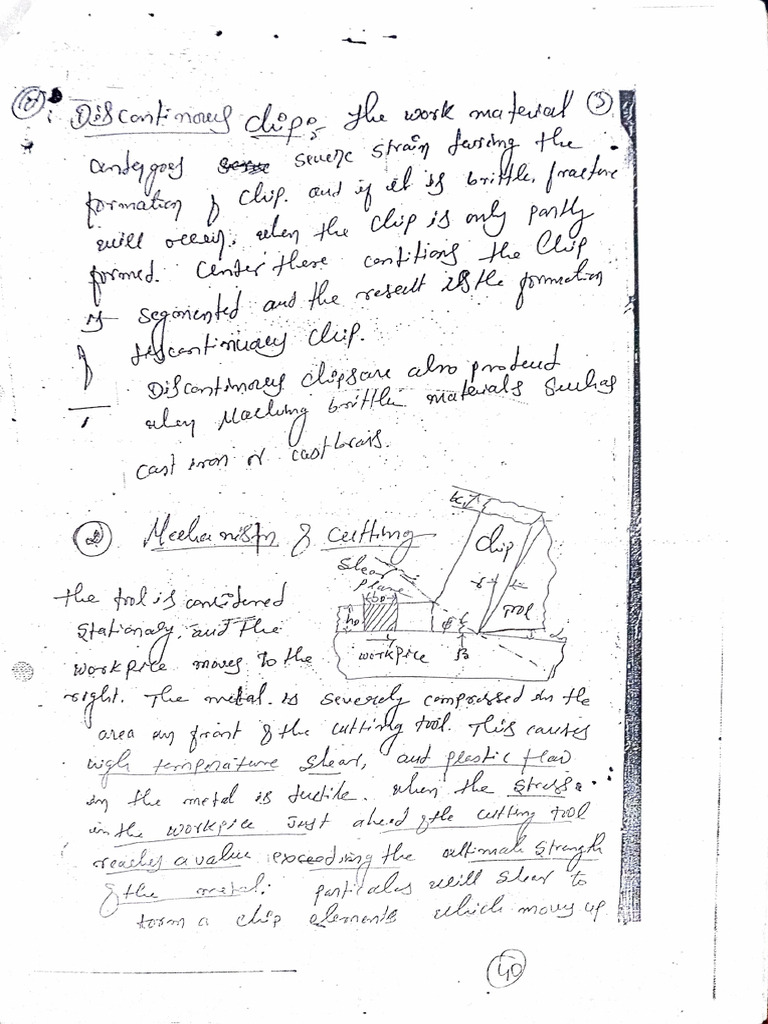 Discontinuous chips:- The work material (3)
undergoes severe strain during the
formation of chip. and if it is brittle, fracture
will occur, when the chip is only partly
formed. Under these conditions the chip
is segmented and the result is the formation
of discontinuous chip.
Discontinuous chips are also produced
when machining brittle materials such as
cast iron or cast brass.
(2) Mechanism of cutting
chip
Shear
plane
Tool
h0
b0
workpiece
φ
β
the tool is considered
stationary, and the
workpiece moves to the
right. The metal is severely compressed in the
area in front of the cutting tool. This causes
high temperature shear, and plastic flow
in the metal is ductile. when the stress
in the workpiece just ahead of the cutting tool
reaches a value exceeding the ultimate strength
of the metal. particules will shear to
form a chip elements which moves up
(40)